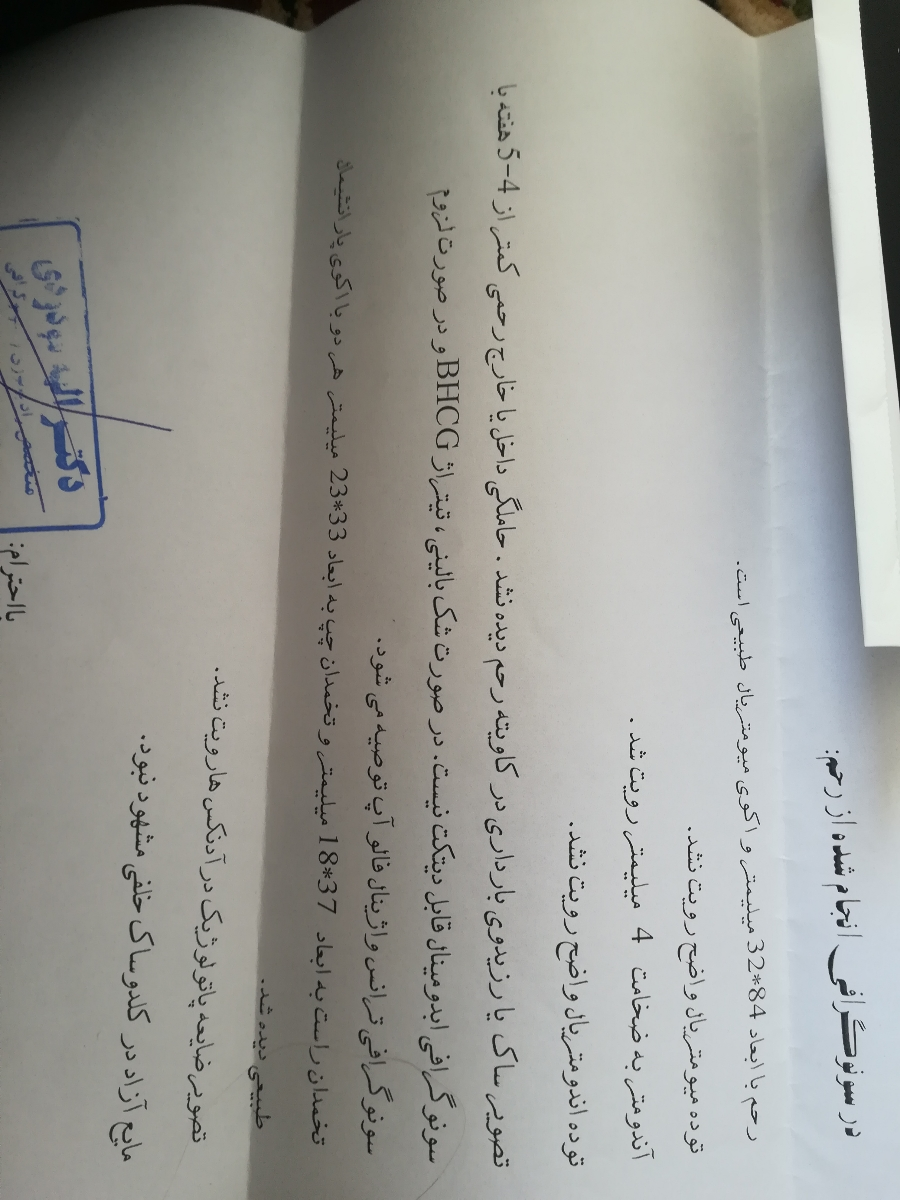 در سونوگرافی انجام شده از رحم:
رحم با ابعاد 84*32 میلیمتر و اکوی میومتریال طبیعی است.
توده میومتریال واضح رویت نشد.
آندومتر به ضخامت 4 میلیمتر رویت شد.
توده اندومتریال واضح رویت نشد.
تصویر ساک یا رزیدوی بارداری در کاویته رحم دیده نشد. حاملگی داخل یا خارج رحمی کمتر از 4-5 هفته با
سونوگرافی ابدومینال قابل دیتکت نیست. در صورت شک بالینی، تیتراژ BHCG و در صورت لزوم
سونوگرافی ترانس واژینال فالو آپ توصیه می شود.
تخمدان راست به ابعاد 37*18 میلیمتر و تخمدان چپ به ابعاد 33*23 میلیمتر هر دو با اکوی پارانشیمال
طبیعی دیده شد.
تصویر ضایعه پاتولوژیک در آدنکس ها رویت نشد.
مایع آزاد در کلدوساک خلفی مشهود نبود.
بااحترام:
دکتر الهه
متخصص